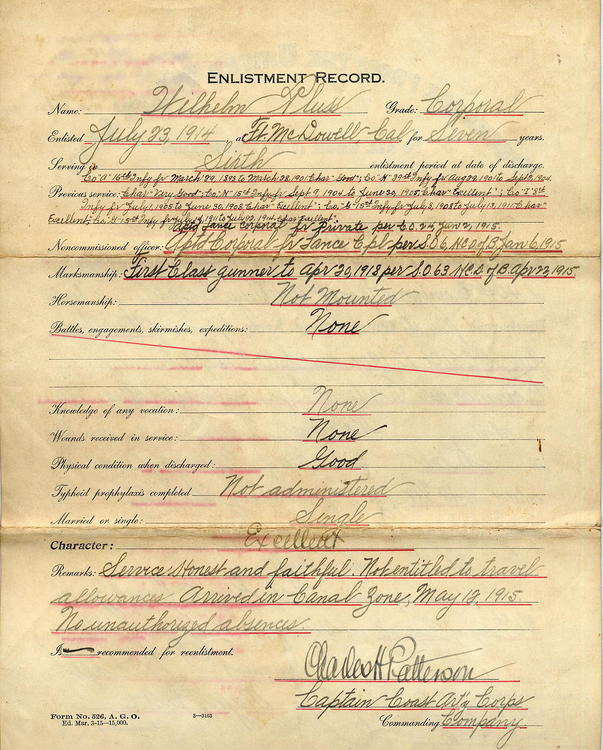 ENLISTMENT RECORD.
Name: Wilhelm Kluss Grade: Corporal
Enlisted July 23, 1914 at Ft. McDowell, Cal for Seven years.
Serving in Sixth enlistment period at date of discharge.
Co "A" 16th Infy fr March 29, 1898 to March 28, 1901 Char "Good"; Co "H" 29th Infy fr Aug 29, 1901 to Sept 4, 1904
Previous service: Char "Very Good"; Co "H" 15th Infy fr Sept 9, 1904 to June 30, 1905, Char "Excellent"; Co "I" 8th
Infy fr July 1, 1905 to June 30, 1908 Char "Excellent"; Co "G" 15th Infy fr July 8, 1908 to July 13, 1911, Char "
Excellent; Co "G" 15th Infy fr July 14, 1911 to July 13, 1914 Char Excellent.
Aptd Lance Corporal fr Private per C.O. 24, Jun 2, 1915.
Noncommissioned officer: Aptd Corporal fr Lance Cpl per S.O. 6, H.C.D. of B. Jan 6, 1915
Marksmanship: First Class gunner to Apr 20, 1918 per S.O. 63 H.C.D. of B. Apr 22, 1915
Horsemanship: Not Mounted
Battles, engagements, skirmishes, expeditions: None
Knowledge of any vocation: None
Wounds received in service: None
Physical condition when discharged: Good
Typhoid prophylaxis completed Not administered
Married or single: Single
Character: Excellent
Remarks: Service Honest and faithful. Not entitled to travel
allowances Arrived in Canal Zone, May 13, 1915
No unauthorized absences.
Is recommended for reenlistment.
Charles H Patterson
Captain Coast Arty Corps
Commanding Company
Form No. 526, A. G. O.
Ed. Mar. 3-15—15,000.
3—3163